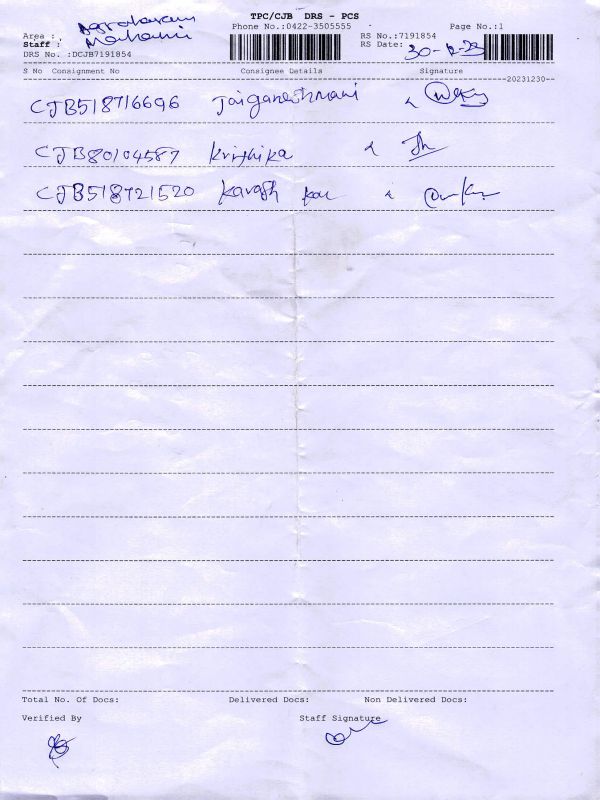 TPC/CJB DRS - PCS
Phone No.:0422-3505555 Page No.:1
Area : Agraharam
Staff :
RS No.:7191854
RS Date: 30-12-23
DRS No. :DCJB7191854
S No Consignment No Consignee Details Signature
20231230
CJB518716696 Jaiganeshmani
CJB80104587 Krithika
CJB518721520
Total No. Of Docs: Delivered Docs: Non Delivered Docs:
Verified By Staff Signature